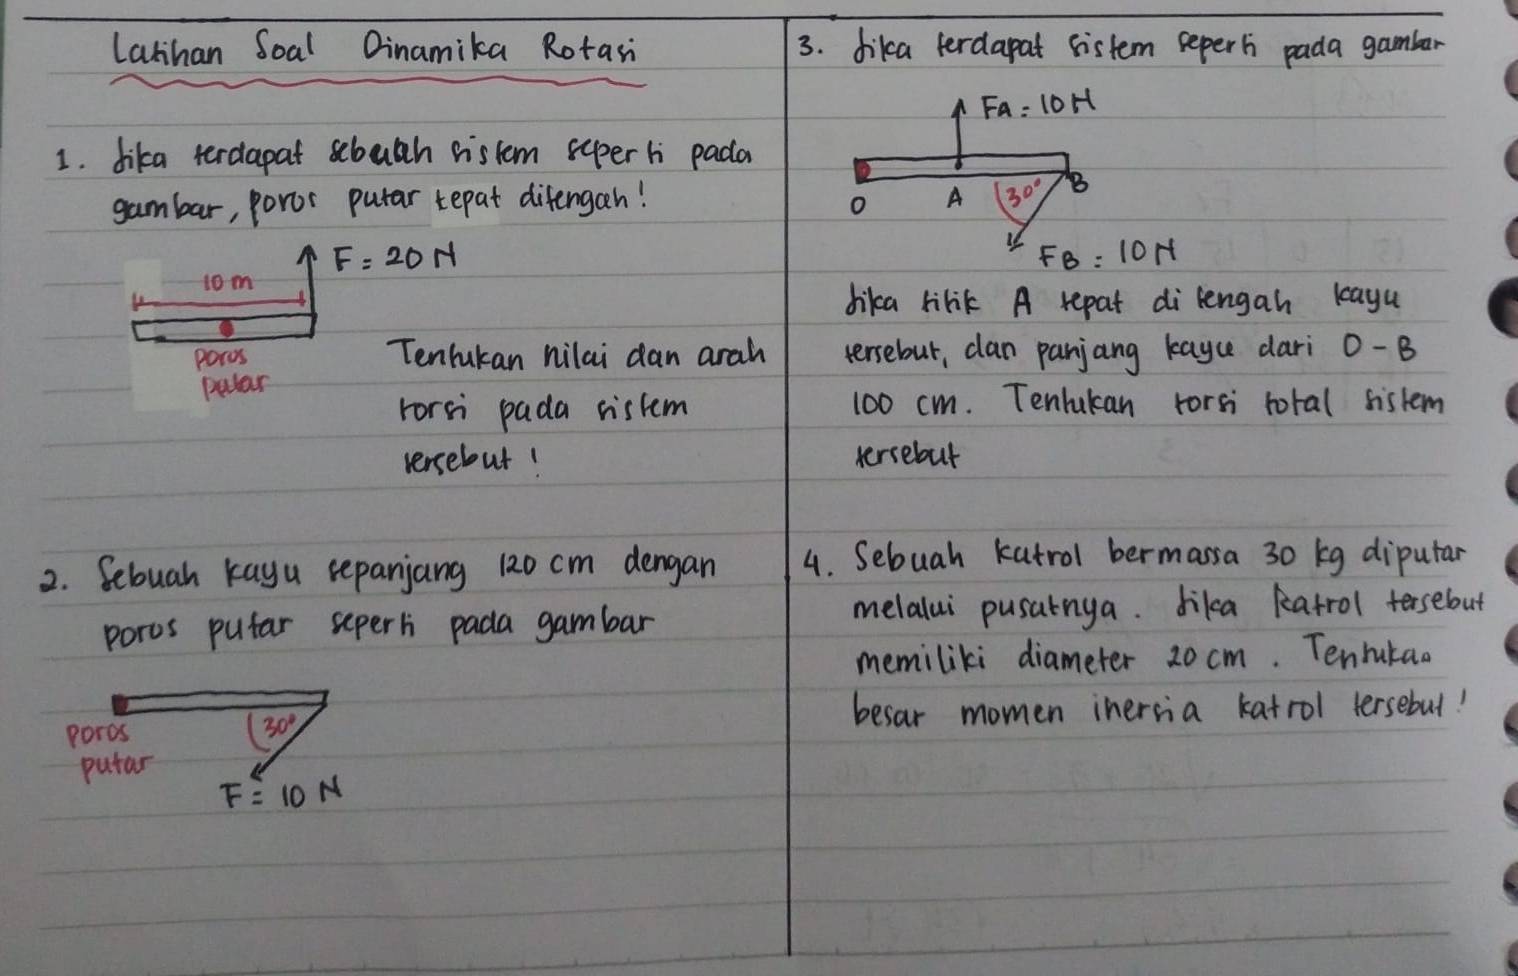 Latihan Soal Dinamika Rotasi
1. Jika terdapat sebuah sistem seperti pada
gambar, poros putar tepat ditengah!
F = 20 N
10 m
poros
putar
Tentukan nilai dan arah
torsi pada sistem
tersebut!
2. Sebuah kayu sepanjang 120 cm dengan
poros putar seperti pada gambar
30°
poros
putar
F = 10 N
3. Jika terdapat sistem seperti pada gambar
FA = 10 N
O A 30° B
FB = 10 N
Jika titik A tepat di tengah kayu
tersebut, dan panjang kayu dari O - B
100 cm. Tentukan torsi total sistem
tersebut
4. Sebuah katrol bermassa 30 kg diputar
melalui pusatnya. Jika katrol tersebut
memiliki diameter 20 cm. Tentukan
besar momen inersia katrol tersebut!